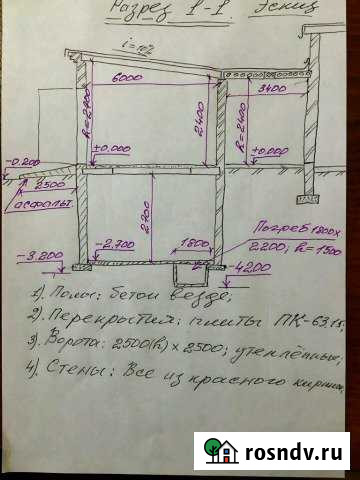 Разрез 1-1. Эскиз
i=10%
6000
3400
h=2700
2400
h=2400
±0,000
±0,000
-0.200
2500
асфальт.
2700
Погреб 1800х
2200; h=1500
-2.700
1800
-3.200
-4200
1). Полы: бетон везде;
2). Перекрытия: плиты ПК-63.15;
3). Ворота: 2500(h) х 2500; утеплённые;
4). Стены: Все из красного кирпича,
rosndv.ru